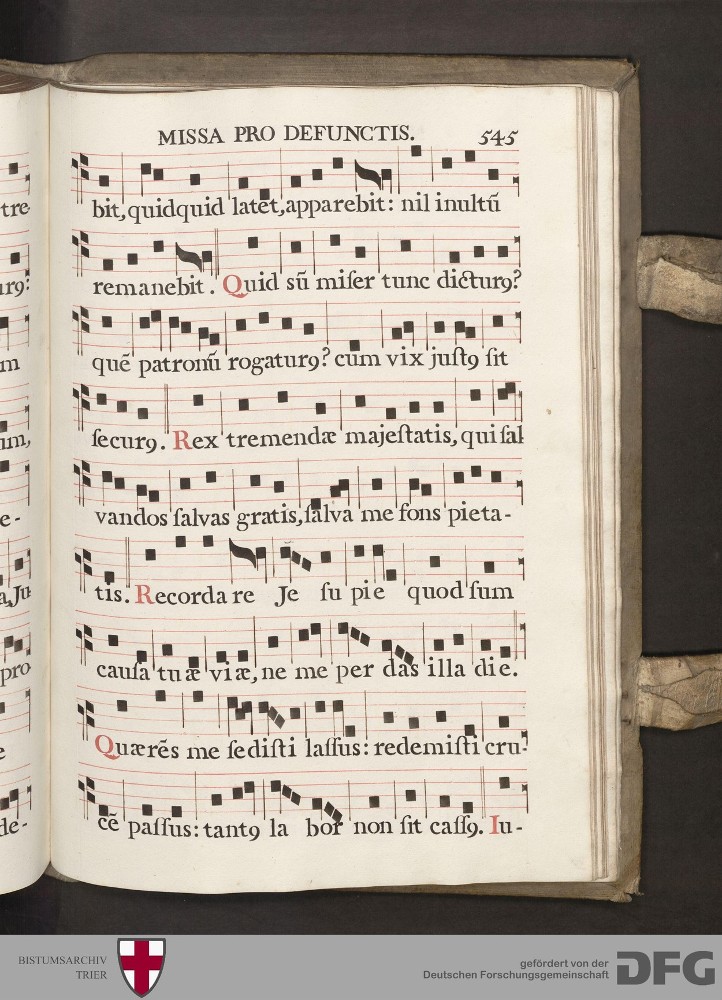 MISSA PRO DEFUNCTIS. 545
bit, quidquid latet, apparebit: nil inultū
remanebit. Quid sū miſer tunc dicturꝯ?
quē patronū rogaturꝯ? cum vix juſtꝯ ſit
ſecurꝯ. Rex tremendæ majeſtatis, qui ſal
vandos ſalvas gratis, ſalva me fons pieta-
tis. Recordare Je ſu pie quod ſum
cauſa tuæ viæ, ne me per das illa die.
Quærēs me ſediſti laſſus: redemiſti cru-
cē paſſus: tantꝯ la bor non ſit caſſꝯ. Iu-
tre
urꝯ:
m
im,
e-
a, Ju
pro
e
de-
BISTUMSARCHIV
TRIER
gefördert von der
Deutschen Forschungsgemeinschaft
DFG